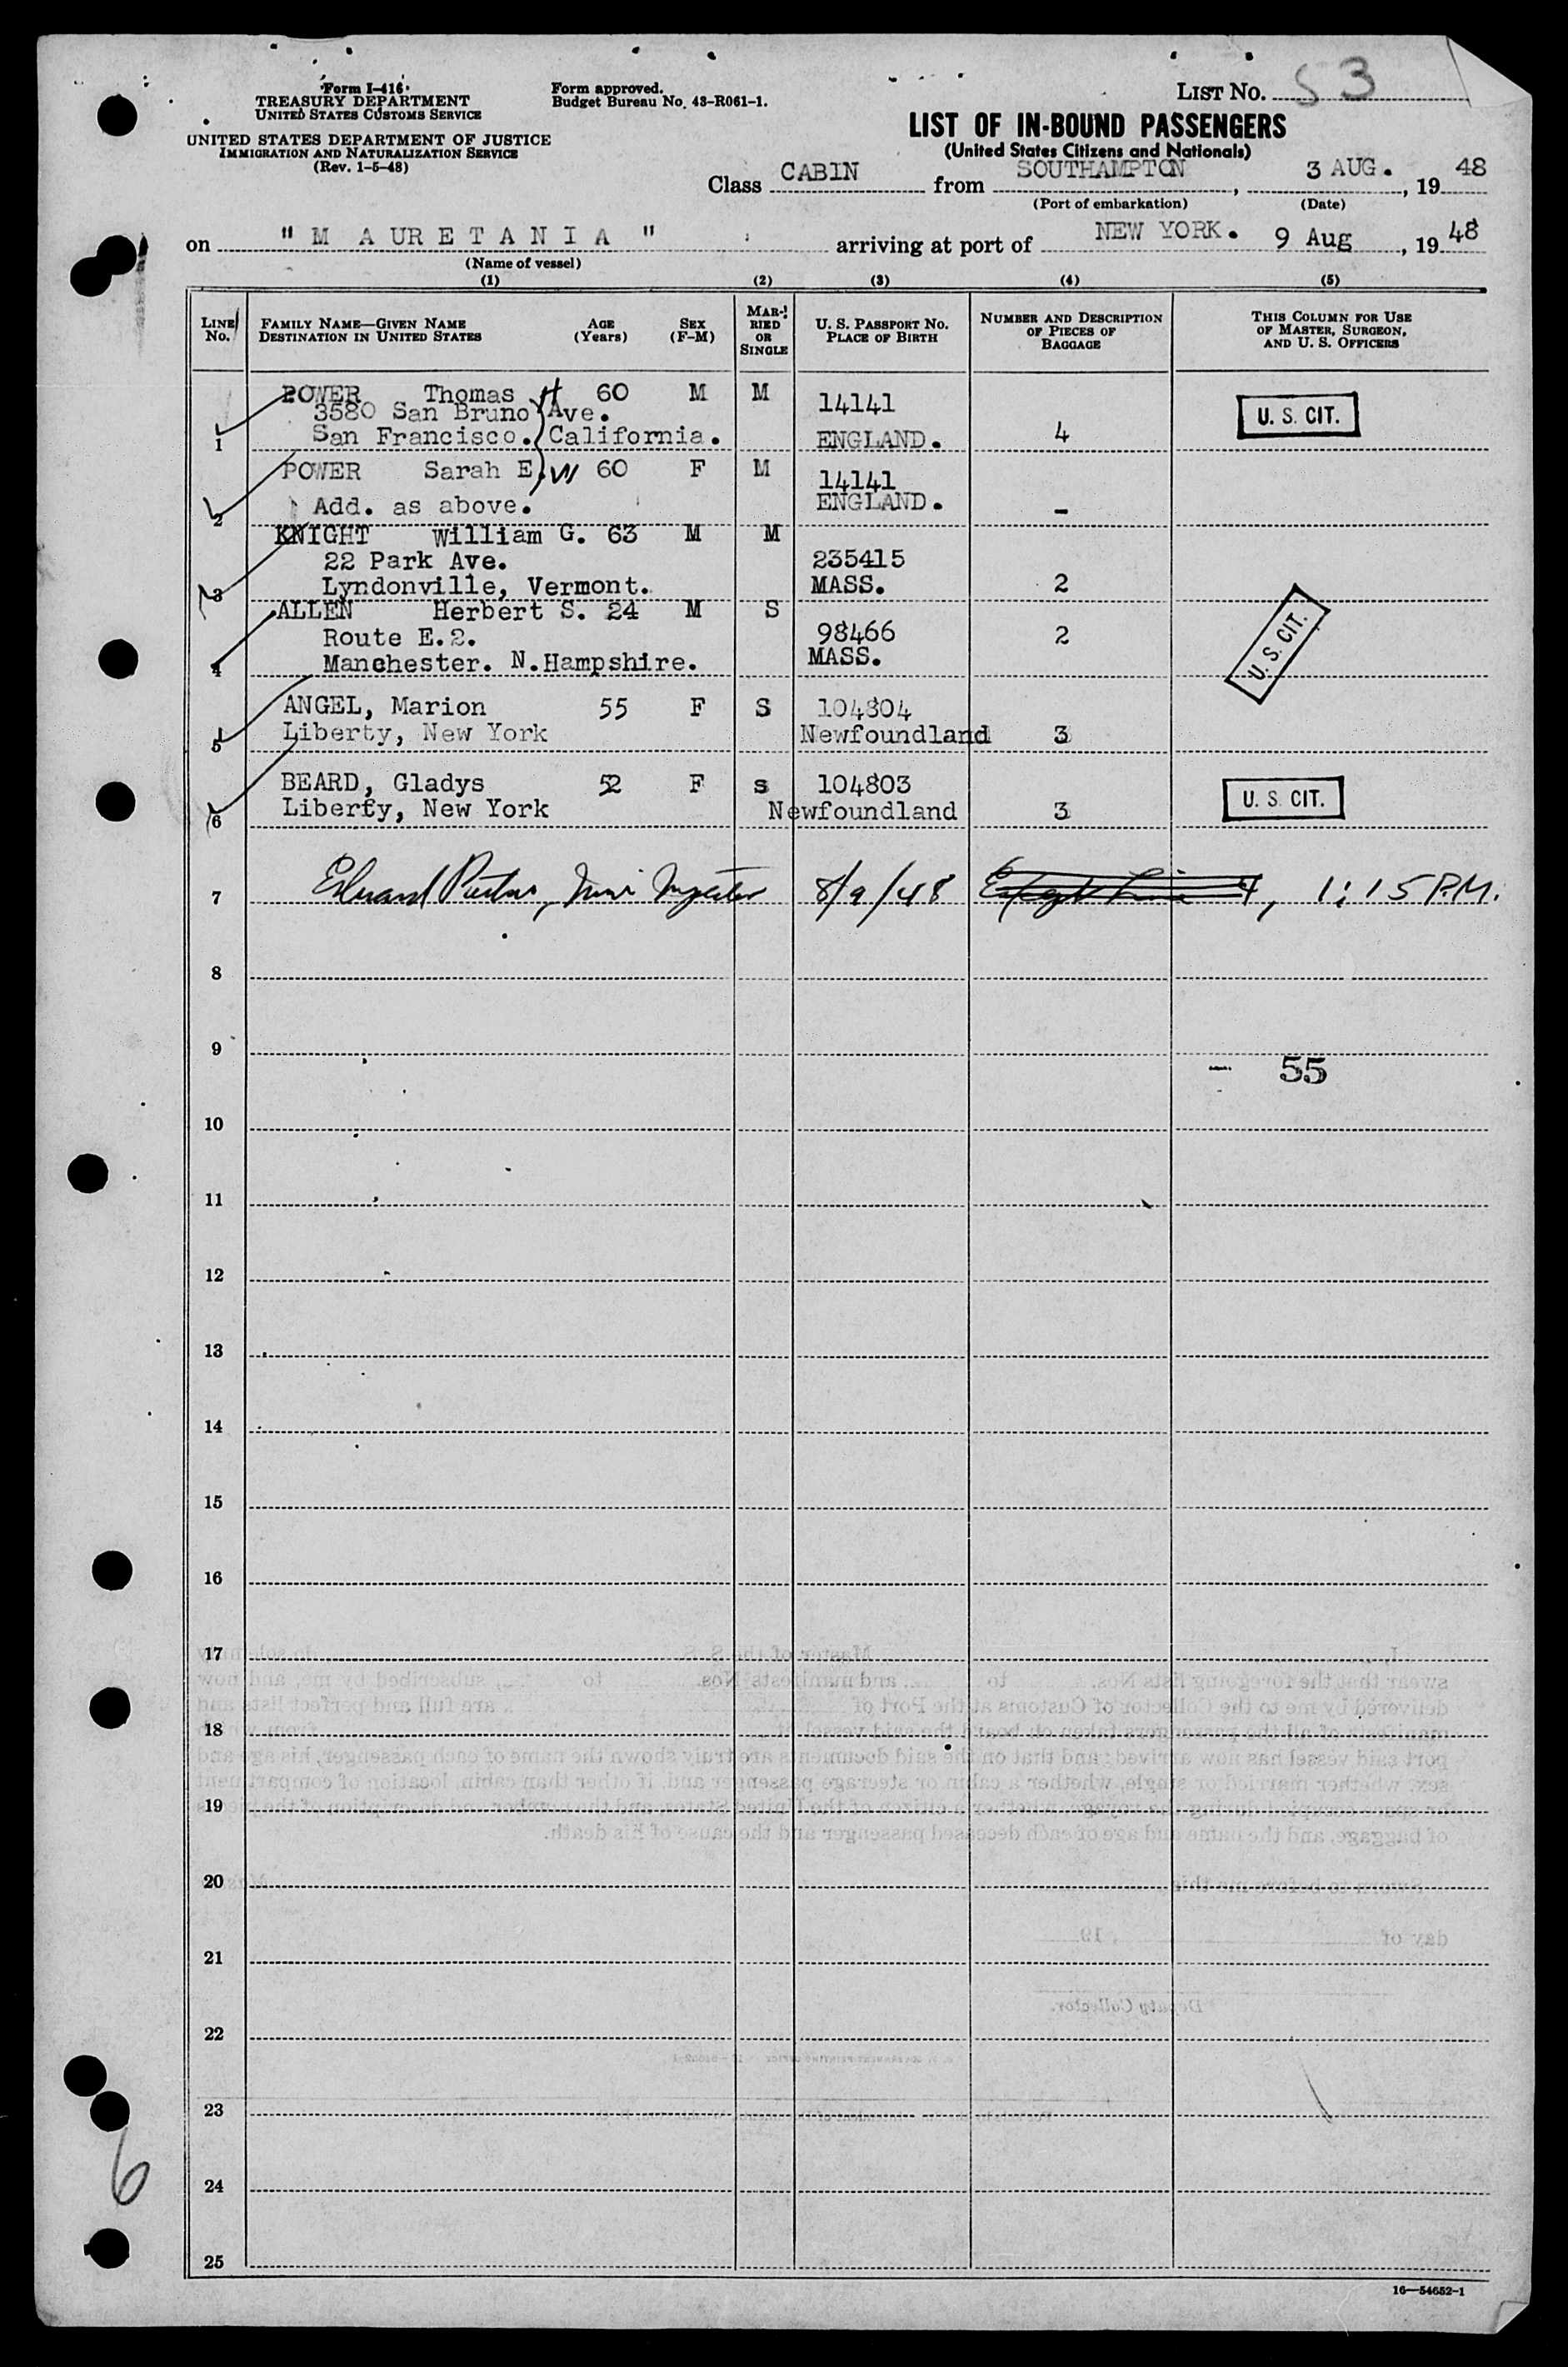 Form I-416
TREASURY DEPARTMENT
UNITED STATES CUSTOMS SERVICE
UNITED STATES DEPARTMENT OF JUSTICE
IMMIGRATION AND NATURALIZATION SERVICE
(Rev. 1-5-48)
Form approved.
Budget Bureau No. 43-R061-1.
LIST No. 53
LIST OF IN-BOUND PASSENGERS
(United States Citizens and Nationals)
Class CABIN from SOUTHAMPTON, 3 AUG., 19 48
(Port of embarkation) (Date)
on "M AURETANIA" arriving at port of NEW YORK. 9 Aug, 19 48
(Name of vessel)
(1) (2) (3) (4) (5)
LINE No. FAMILY NAME—GIVEN NAME DESTINATION IN UNITED STATES AGE (Years) SEX (F-M) MARRIED OR SINGLE U. S. PASSPORT No. PLACE OF BIRTH NUMBER AND DESCRIPTION OF PIECES OF BAGGAGE THIS COLUMN FOR USE OF MASTER, SURGEON, AND U. S. OFFICERS
POWER Thomas H 60 M M 14141 U. S. CIT.
3580 San Bruno Ave.
1 San Francisco. California. ENGLAND. 4
POWER Sarah E. W 60 F M 14141
2 Add. as above. ENGLAND. -
KNIGHT William G. 63 M M
22 Park Ave. 235415
3 Lyndonville, Vermont. MASS. 2
ALLEN Herbert S. 24 M S
Route E.2. 98466 2 U. S. CIT.
4 Manchester. N.Hampshire. MASS.
ANGEL, Marion 55 F S 104804
5 Liberty, New York Newfoundland 3
BEARD, Gladys 52 F s 104803 U. S. CIT.
6 Liberty, New York Newfoundland 3
7 Edward 8/9/48 , 1:15 P.M.
8
9
- 55
10
11
12
13
14
15
16
17
18
19
20
21
22
23
24
6
25
16—54652-1